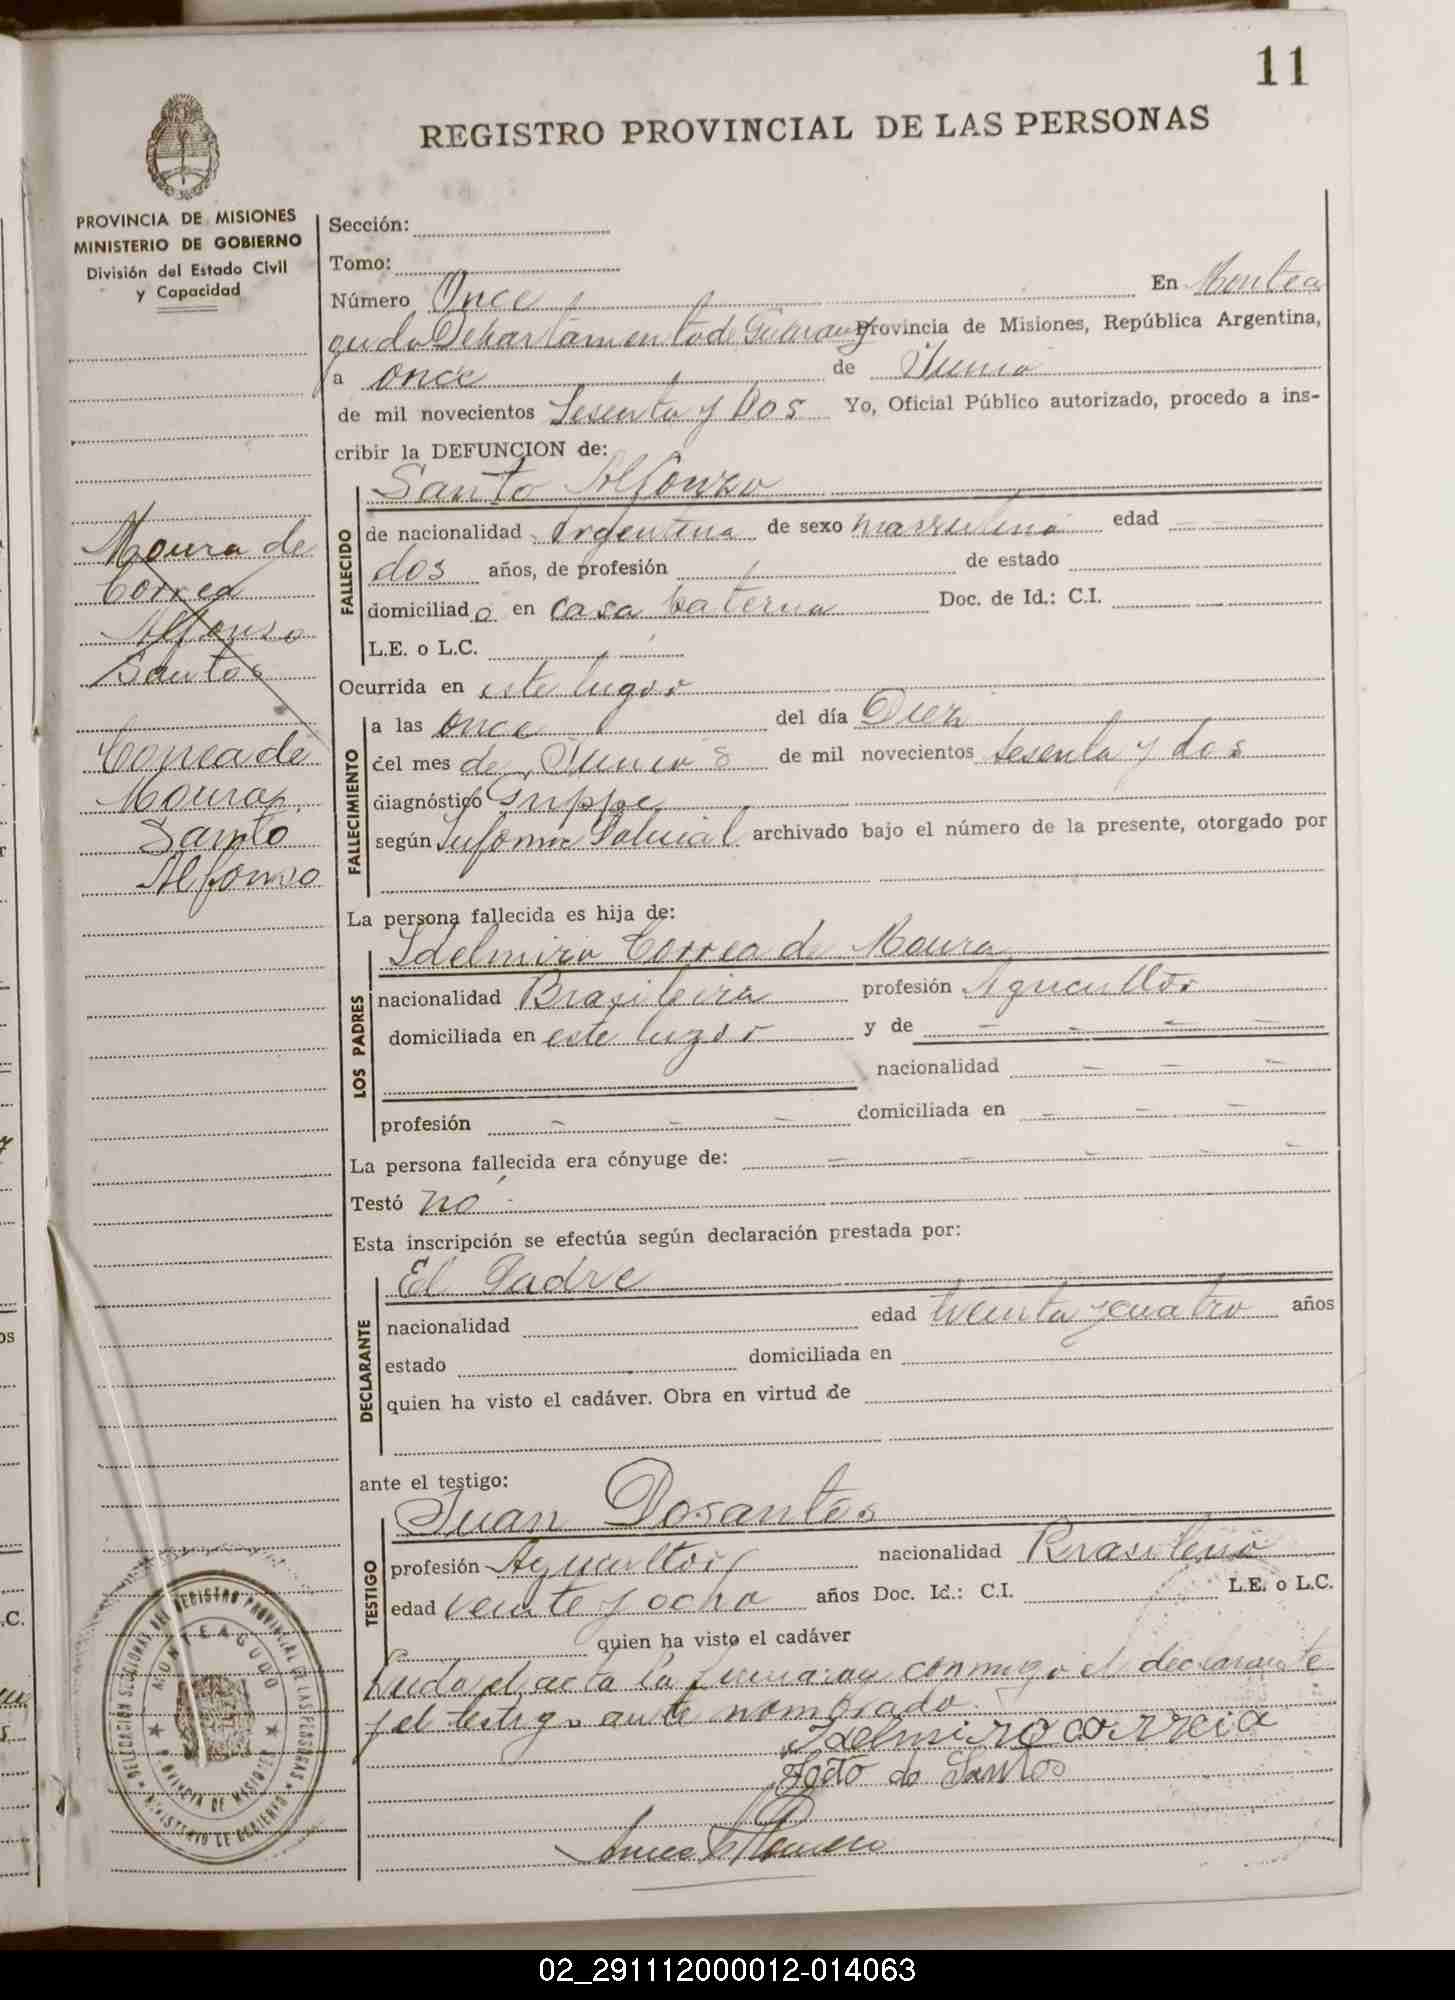 11
REGISTRO PROVINCIAL DE LAS PERSONAS
PROVINCIA DE MISIONES
MINISTERIO DE GOBIERNO
División del Estado Civil
y Capacidad
Sección:
Tomo:
Número Once En Montea
gudo Departamento de Guarany Provincia de Misiones, República Argentina,
a once de Junio
de mil novecientos Sesenta y Dos Yo, Oficial Público autorizado, procedo a ins-
cribir la DEFUNCION de:
Santo Alfonso
FALLECIDO
de nacionalidad Argentina de sexo masculino edad
dos años, de profesión de estado
domiciliado en casa Paterna Doc. de Id.: C.I.
L.E. o L.C.
Moura de
Correa
Alfonso
Santos
Correa de
Moura
Santo
Alfonso
Ocurrida en este lugar
FALLECIMIENTO
a las once del día Diez
del mes de Junio de mil novecientos sesenta y dos
diagnóstico Grippe
según Informe Policial archivado bajo el número de la presente, otorgado por
La persona fallecida es hija de:
LOS PADRES
Idelmiro Correa de Moura
nacionalidad Brasileira profesión Agricultor
domiciliada en este lugar y de
nacionalidad
profesión domiciliada en
La persona fallecida era cónyuge de:
Testó no
Esta inscripción se efectúa según declaración prestada por:
El Padre
DECLARANTE
nacionalidad edad treinta y cuatro años
estado domiciliada en
quien ha visto el cadáver. Obra en virtud de
ante el testigo:
Juan Dosantos
TESTIGO
profesión Agricultor nacionalidad Brasileño
edad veinte y ocho años Doc. Id.: C.I. L.E. o L.C.
quien ha visto el cadáver
Leida el acta la firmaran conmigo el declarante
y el testigo ante nombrado
Idelmiro correia
do Santos
DELEGACION SECCIONAL DEL REGISTRO PROVINCIAL DE LAS PERSONAS
MONTEAGUDO
PROVINCIA DE MISIONES
MINISTERIO DE GOBIERNO
02_291112000012-014063